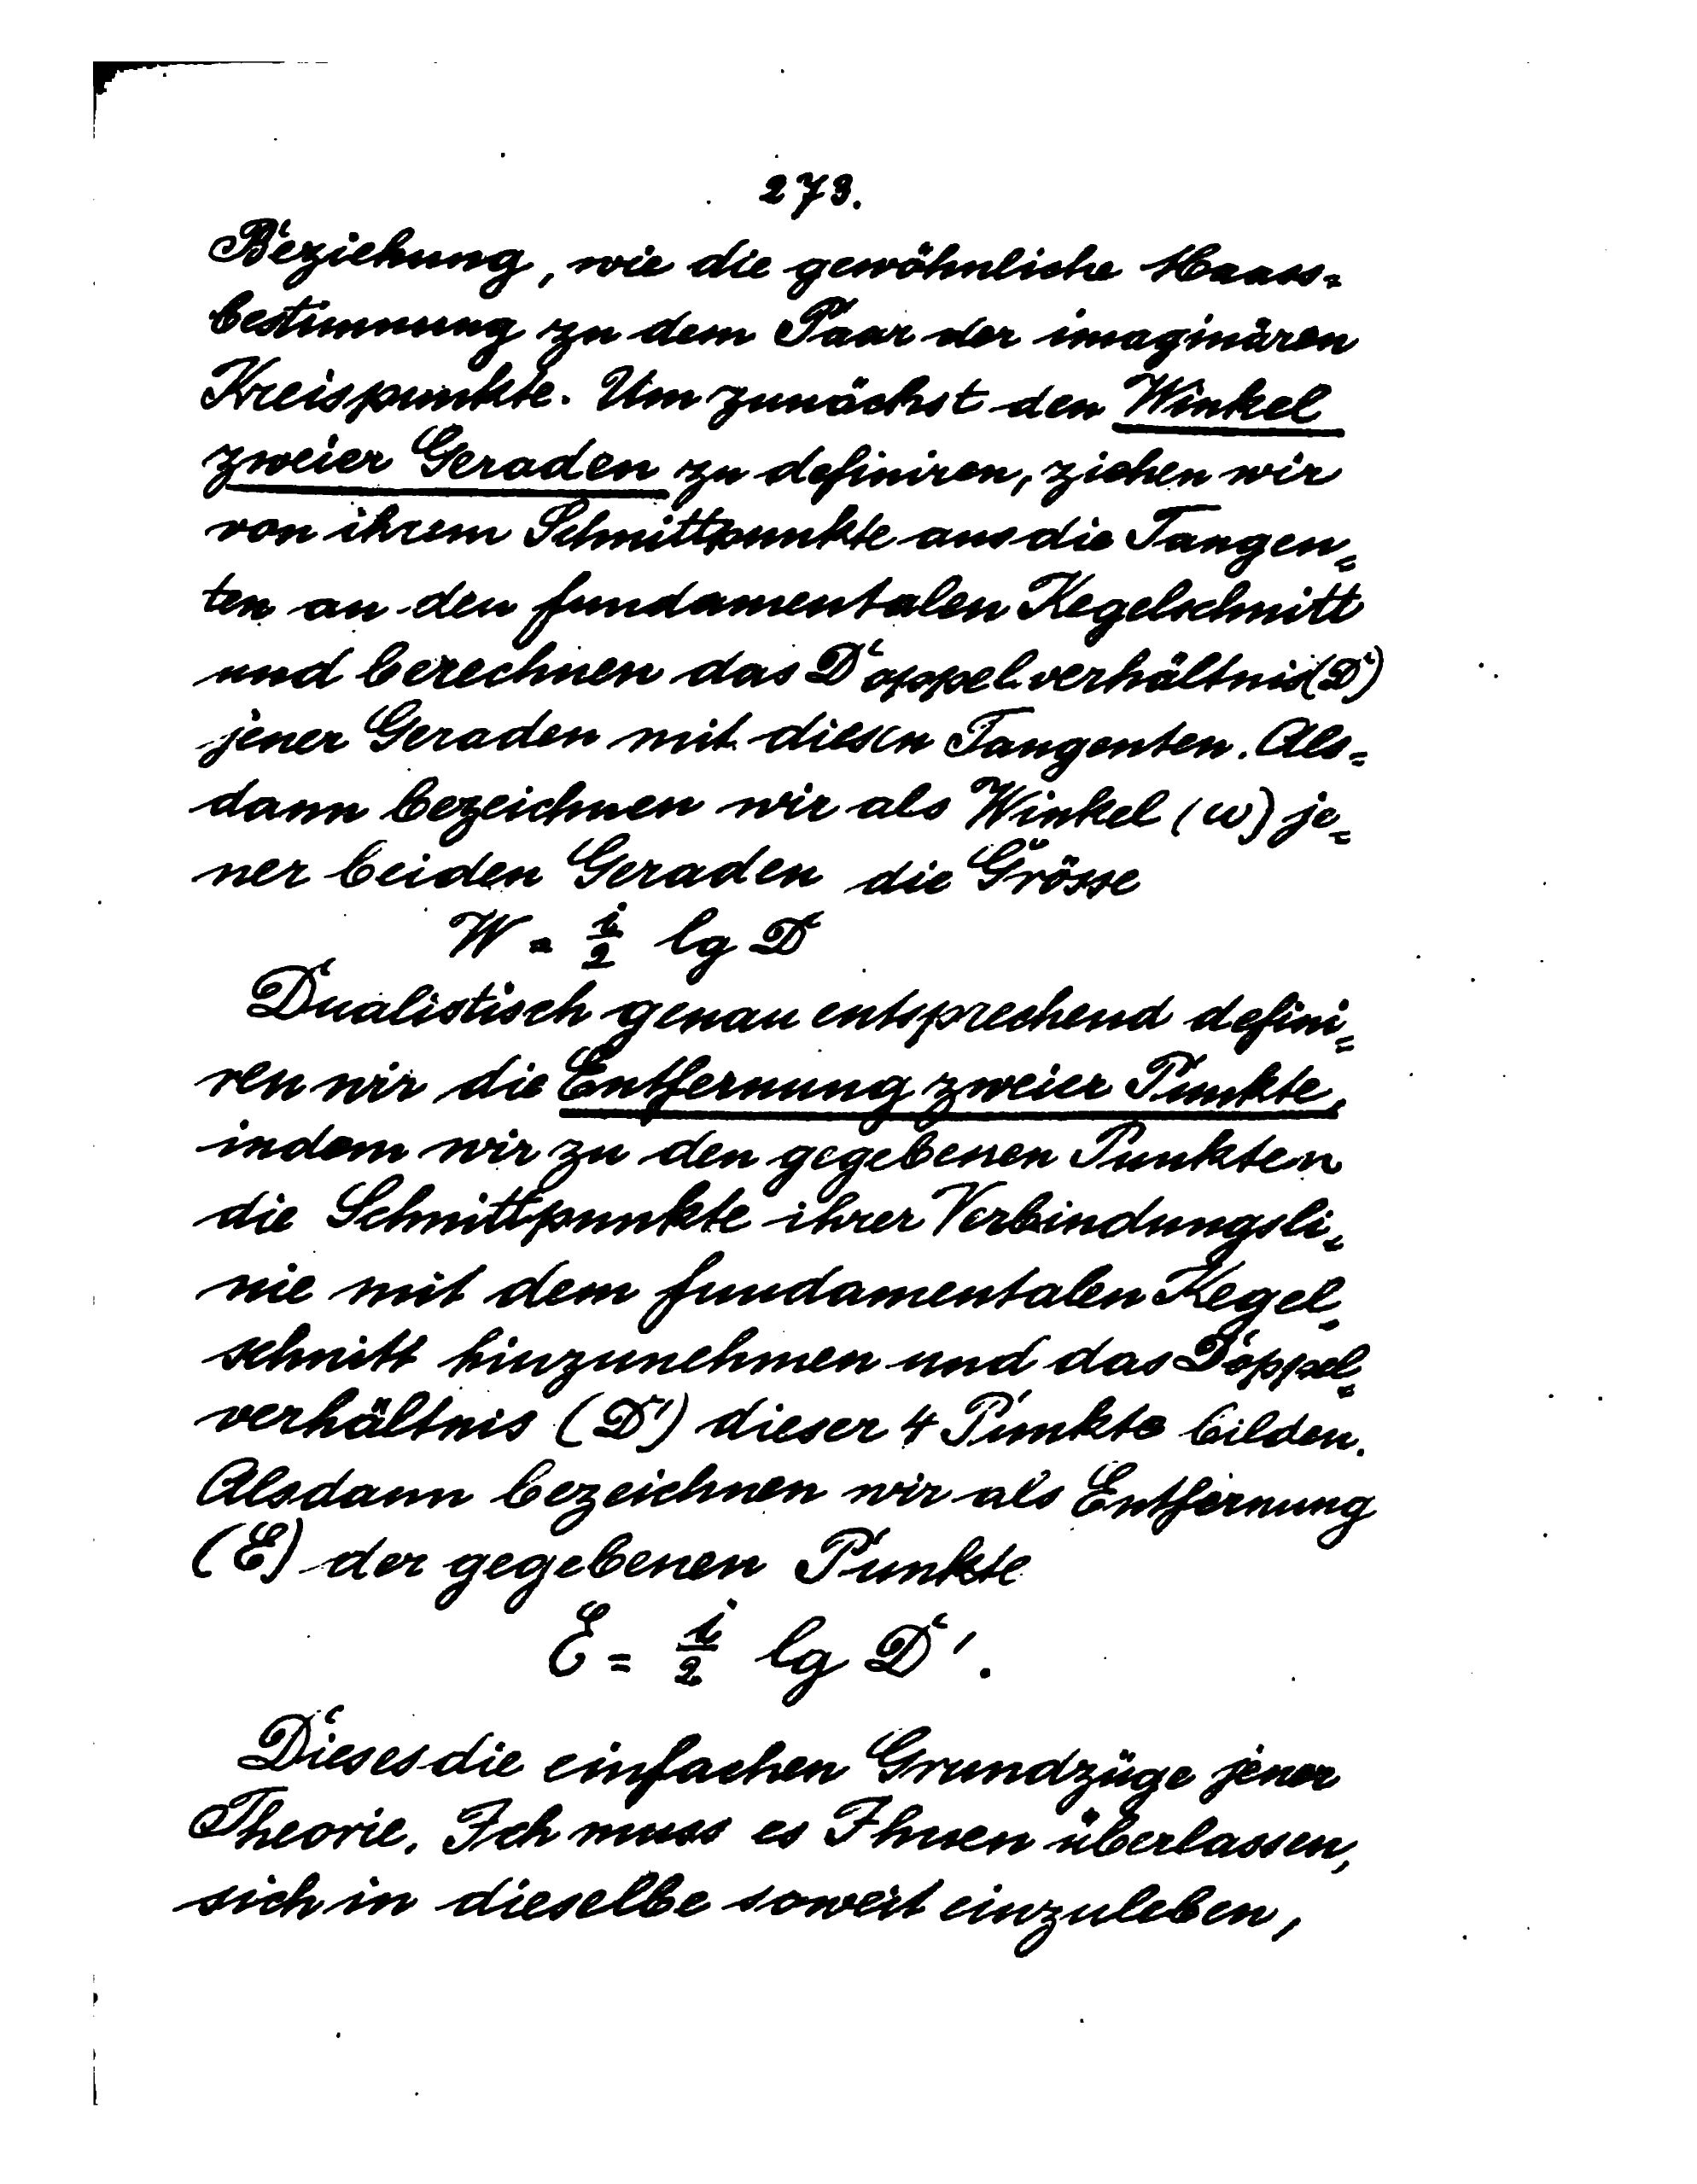 273.
Beziehung, wie die gewöhnliche Maass=
bestimmung zu dem Paar der imaginären
Kreispunkte. Um zunächst den Winkel
zweier Geraden zu definiren, ziehen wir
von ihrem Schnittpunkte aus die Tangen=
ten an den fundamentalen Kegelschnitt
und berechnen das Doppelverhältnis (D)
jener Geraden mit diesen Tangenten. Als=
dann bezeichnen wir als Winkel (W) je=
ner beiden Geraden die Grösse
W = i/2 lg D
Dualistisch genau entsprechend defini=
ren wir die Entfernung zweier Punkte,
indem wir zu den gegebenen Punkten
die Schnittpunkte ihrer Verbindungsli=
nie mit dem fundamentalen Kegel=
schnitt hinzunehmen und das Doppel=
verhältnis (D') dieser 4 Punkte bilden.
Alsdann bezeichnen wir als Entfernung
(E) der gegebenen Punkte
E = i/2 lg D'.
Dieses die einfachen Grundzüge jener
Theorie. Ich muss es Ihnen überlassen,
sich in dieselbe soweit einzuleben,